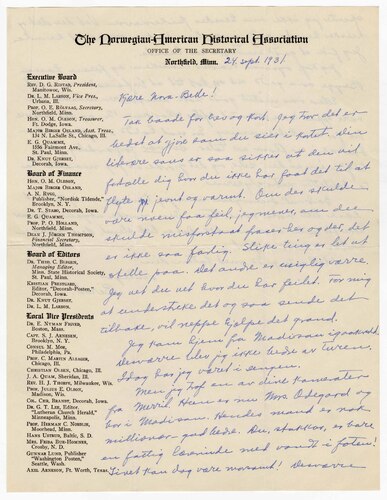 The Norwegian-American Historical Association
OFFICE OF THE SECRETARY
Northfield, Minn. 24 sept. 1931
Executive Board
REV. D. G. RISTAD, President,
Manitowoc, Wis.
DR. L. M. LARSON, Vice Pres.,
Urbana, Ill.
PROF. O. E. RÖLVAAG, Secretary,
Northfield, Minn.
HON. O. M. OLESON, Treasurer,
Ft. Dodge, Iowa.
MAJOR BIRGER OSLAND, Asst. Treas.,
134 N. LaSalle St., Chicago, Ill.
E. G. QUAMME,
1596 Fairmont Ave.,
St. Paul, Minn.
DR. KNUT GJERSET,
Decorah, Iowa.
Board of Finance
HON. O. M. OLESON,
MAJOR BIRGER OSLAND,
A. N. RYGG,
Publisher, "Nordisk Tidende,"
Brooklyn, N. Y.
DR. T. STABO, Decorah, Iowa.
E. G. QUAMME,
PROF. P. O. HOLLAND,
Northfield, Minn.
DEAN J. JÖRGEN THOMPSON,
Financial Secretary,
Northfield, Minn.
Board of Editors
DR. THEO. C. BLEGEN,
Managing Editor,
Minn. State Historical Society,
St. Paul, Minn.
KRISTIAN PRESTGARD,
Decorah, Iowa.
DR. KNUT GJERSET,
DR. L. M. LARSON,
Local Vice Presidents
DR. E. NYMAN FIGVED,
Boston, Mass.
CAPT. S. J. ARNESEN,
Brooklyn, N. Y.
CONSUL M. MOE,
Philadelphia, Pa.
PROF. C. MARIUS ALSAGER,
Chicago, Ill.
CHRISTIAN OLSEN, Chicago, Ill.
J. A. QUAM, Sheridan, Ill.
REV. H. J. THORPE, Milwaukee, Wis.
PROF. JULIUS E. OLSON,
Madison, Wis.
COL. CHR. BRANDT, Decorah, Iowa.
DR. G. T. LEE, Editor,
"Lutheran Church Herald,"
Minneapolis, Minn.
PROF. HERMAN C. NORDLIE,
Moorhead, Minn.
HANS USTRUD, Baltic, S. D.
MRS. FRIDA BUE-HOMNES,
Crosby, N. D.
GUNNAR LUND, Publisher
"Washington Posten,"
Seattle, Wash.
AXEL ARNESON, Ft. Worth, Texas.
Kjære Nora-Bede!
Tak baade for brev og kort. Jeg tror det er
bedst at gjøre som du sier i kortet. Din
saa sikker at den vil
fortælle dig hvor du ikke har faaet det til at
flyte jevnt og varmt. Om der skulde
være noen faa feil, jeg mener, om du
skulde misforstaat faser her og der, det
er ikke saa farlig. Slike ting er let at
stelle paa. Det andre er usiglig værre.
Jeg vet du vet hvor du har feilet. For mig
at understreke det og saa sende det
tilbake, vil neppe hjelpe det grand.
Jeg kom hjem fra Madison igaarkveld.
Desværre blev jeg ikke bedre av turen.
Idag har jeg været i sengen.
Men jeg traf en av dine kamerater
fra Merril. Hun er nu Mrs. Odegard og
bor i Madison. Hendes mand er nok
millionær good bede. Du, stakkar, er bare
en fattig med vondt i foten!
Livet kan dog være morsomt! Desværre